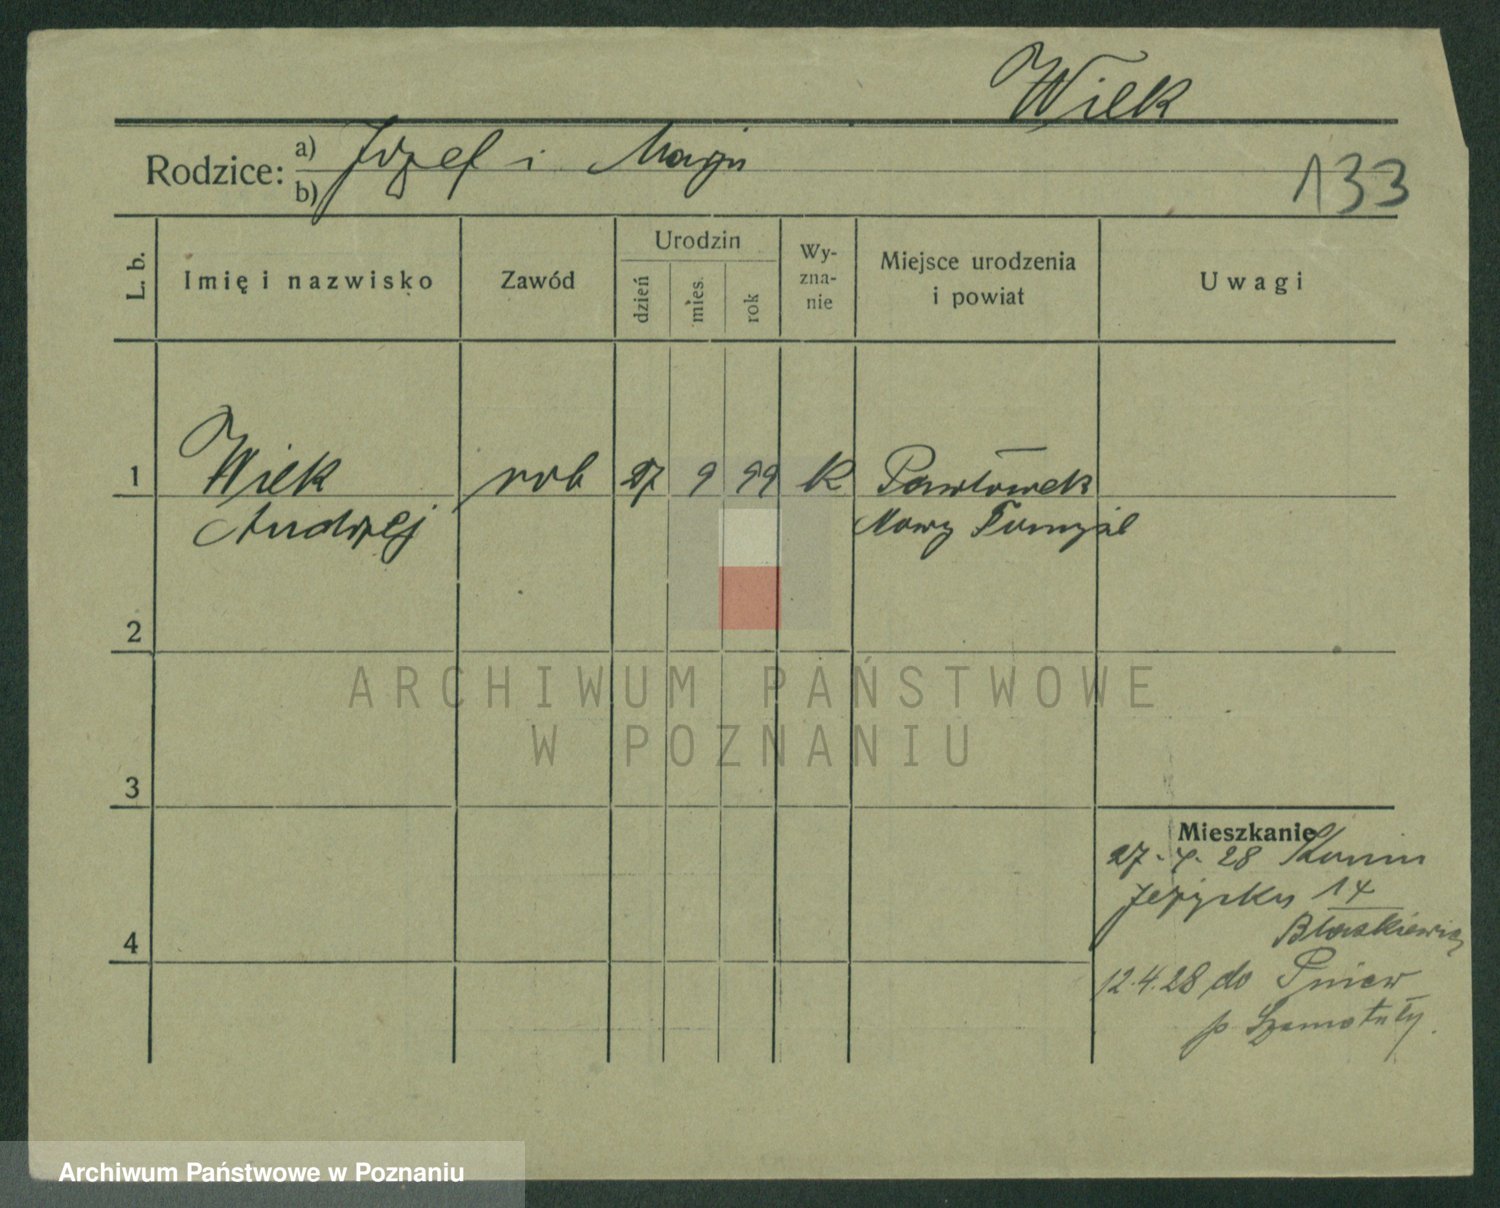 Wilk
Rodzice: a) Józef i Marja
b)
133
L. b.
Imię i nazwisko
Zawód
Urodzin
dzień
mies.
rok
Wy-
zna-
nie
Miejsce urodzenia
i powiat
Uwagi
1 Wilk rob 27 9 99 K Pawłówek
Andrzej Nowy Tomyśl
2
ARCHIWUM PAŃSTWOWE
W POZNANIU
3
Mieszkanie
27. 28 Konin
14
4
12.4.28 do Pniew
p Szamotuły.
Archiwum Państwowe w Poznaniu